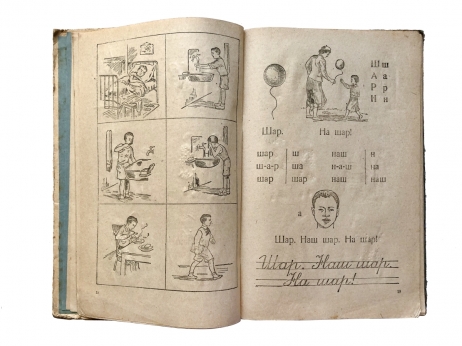 Ш ш
А а
Р р
Н н
Шар. На шар!
шар ш наш н
ш-а-р ша н-а-ш на
шар шар наш наш
а
Шар. Наш шар. На шар!
Шар. Наш шар.
На шар!